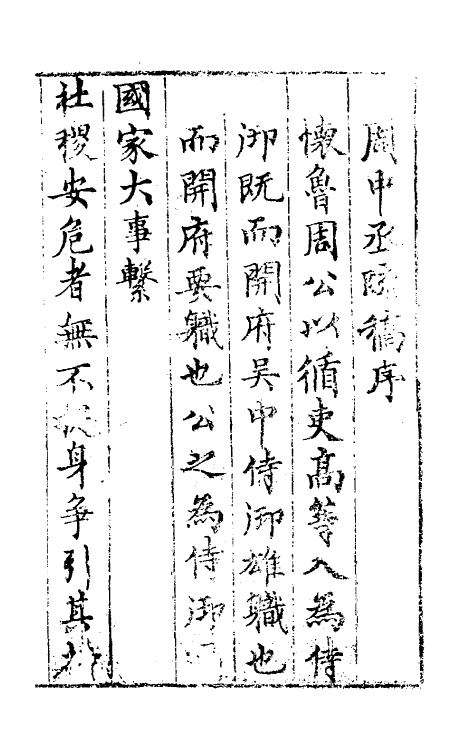 周中丞疏稿序
懷魯周公以循吏高等入為侍
御既而開府吳中侍御雄職也
而開府要職也公之為侍御
國家大事繫
社稷安危者無不挺身爭引其